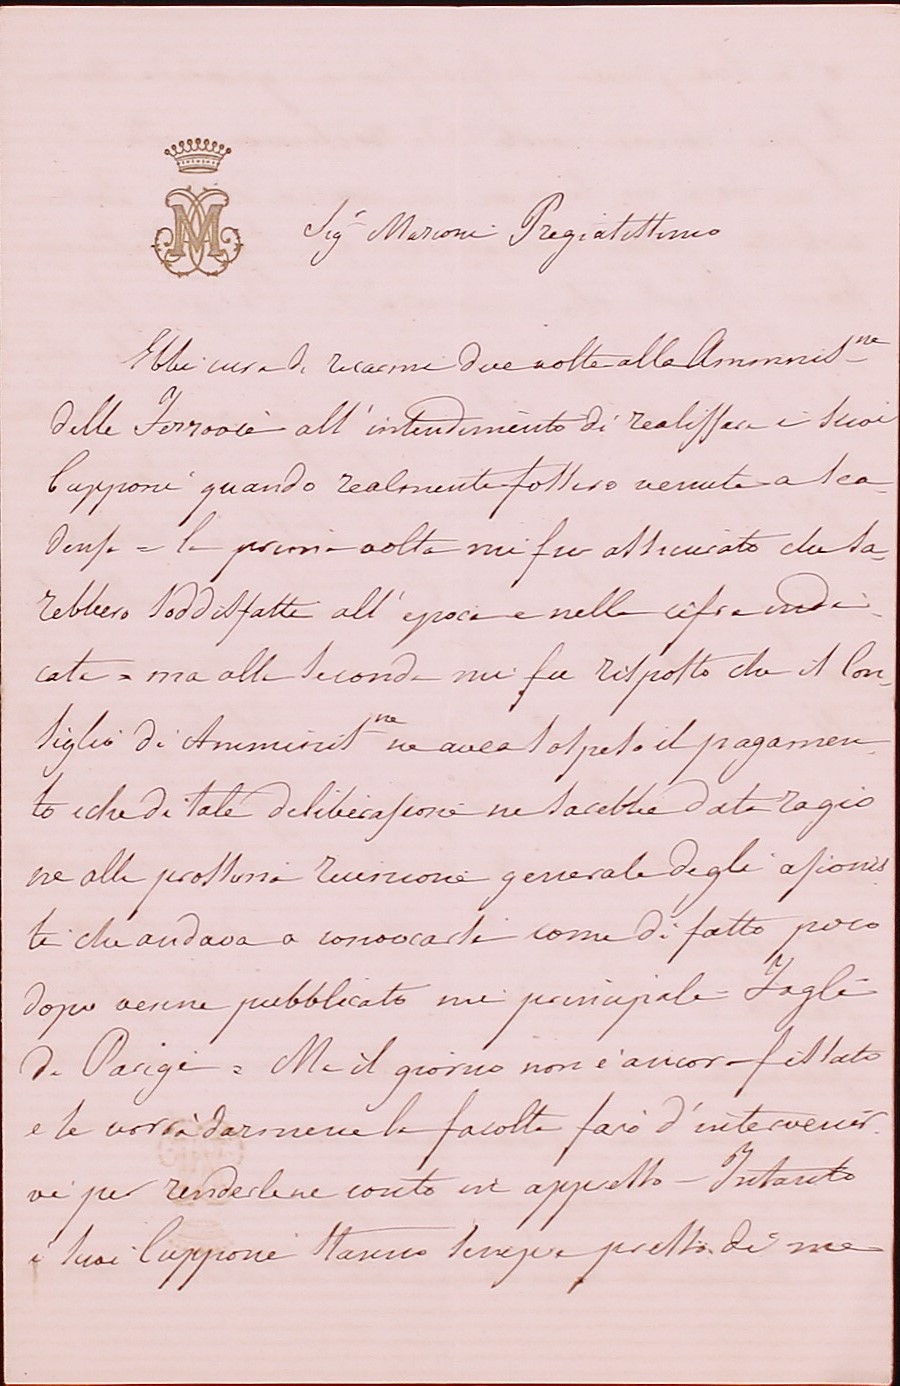 M
Sig.r Marconi Pregiatissimo
Ebbi cura di recarmi due volte alla Amminist.ne
delle Ferrovie all'intendimento di realizzare i suoi
Cupponi quando realmente fossero venuti a sca-
denza = la prima volta mi fu assicurato che sa-
rebbero soddisfatti all'epoca e nella cifra indi-
cata = ma alla seconda mi fu risposto che il Con-
siglio di Amminist.ne ne avea sospeso il pagamen-
to e che di tale deliberazione ne sarebbe data ragio
ne alla prossima riunione generale degli azionis
ti che andava a convocarsi come di fatto poco
dopo venne pubblicato nei principale Fogli
di Parigi = Ma il giorno non è ancora fissato
e se vorrà darmene la facoltà farò d'intervenir-
vi per renderlene conto in appresso - Intanto
i suoi Cupponi stanno sempre presso di me